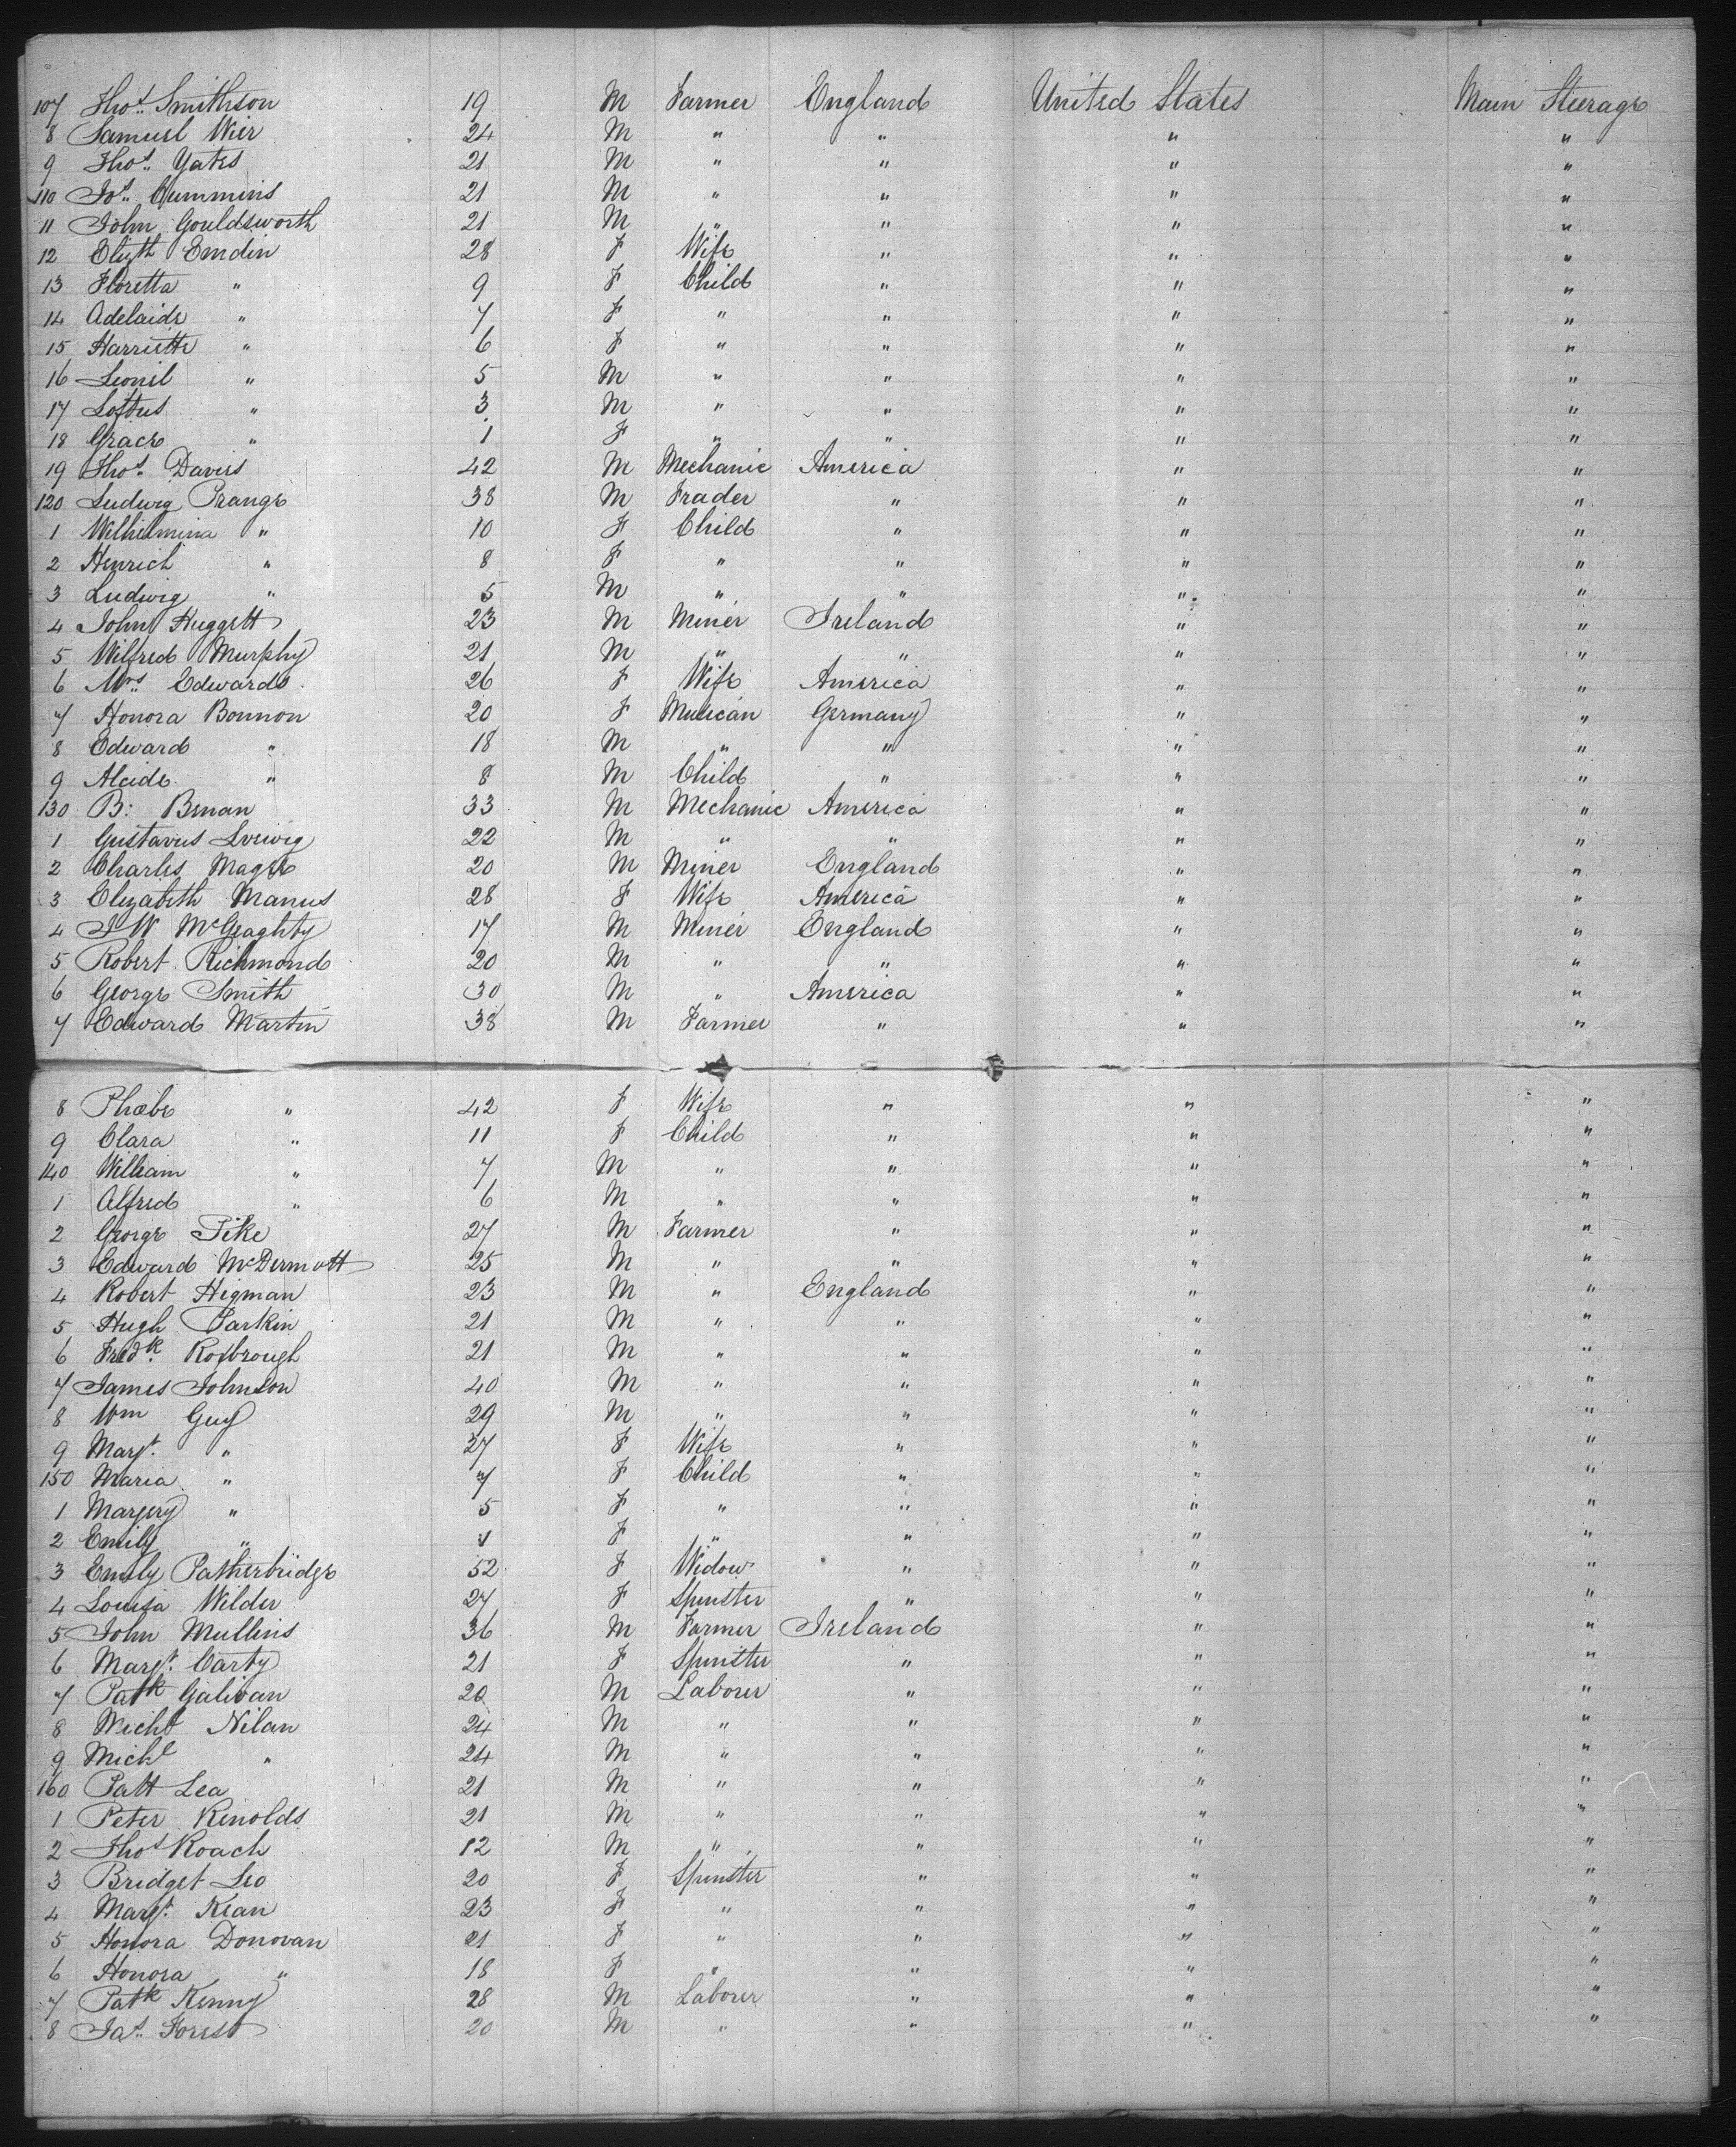 107 Thos. Smithson 19 M Farmer England United States Main Steerage
8 Samuel Wier 24 M " " " "
9 Thos. Yates 21 M " " " "
110 Jos. Cummins 21 M " " " "
11 John Gouldsworth 21 M " " " "
12 Elizth Emdin 28 F Wife " " "
13 Floretta " 9 F Child " " "
14 Adelaide " 7 F " " " "
15 Harriette " 6 F " " " "
16 Leonil " 5 M " " " "
17 Loftus " 3 M " " " "
18 Grace " 1 F " " " "
19 Thos. Davies 42 M Mechanic America " "
120 Ludwig Prange 38 M Trader " " "
1 Wilhelmina " 10 F Child " " "
2 Henrich " 8 F " " " "
3 Ludwig " 5 M " " " "
4 John Huggett 23 M Miner Ireland " "
5 Wilfred Murphy 21 M " " " "
6 Mrs. Edwards 26 F Wife America " "
7 Honora Bonnon 20 F Musican Germany " "
8 Edward " 18 M " " " "
9 Alcide " 8 M Child " " "
130 B: Benan 33 M Mechanic America " "
1 Gustavus 22 M " " " "
2 Charles Magee 20 M Miner England " "
3 Elizabeth Manus 28 F Wife America " "
4 J W McGeaghty 17 M Miner England " "
5 Robert Richmond 20 M " " " "
6 George Smith 30 M " America " "
7 Edward Martin 38 M Farmer " " "
8 Phœbe " 42 F Wife " " "
9 Clara " 11 F Child " " "
140 William " 7 M " " " "
1 Alfred " 6 M " " " "
2 George Pike 27 M Farmer " " "
3 Edward McDermott 25 M " " " "
4 Robert Higman 23 M " England " "
5 Hugh Parkin 21 M " " " "
6 Fredk. Roxbrough 21 M " " " "
7 James Johnson 40 M " " " "
8 Wm Guy 29 M " " " "
9 Margt. " 27 F Wife " " "
150 Maria " 7 F Child " " "
1 Margery " 5 F " " " "
2 Emily " 1 F " " " "
3 Emily Patherbridge 52 F Widow " " "
4 Louisa Wilder 27 F Spinster " " "
5 John Mullins 36 M Farmer Ireland " "
6 Margt. Carty 21 F Spinster " " "
7 Patk Galivan 20 M Laborer " " "
8 Michl Nilan 24 M " " " "
9 Michl " 24 M " " " "
160 Patt Lea 21 M " " " "
1 Peter Renolds 21 M " " " "
2 Thos Roach 12 M " " " "
3 Bridget Leo 20 F Spinster " " "
4 Margt. Kean 23 F " " " "
5 Honora Donovan 21 F " " " "
6 Honora " 18 F " " " "
7 Patk Kenny 28 M Laborer " " "
8 Jas. Forest 20 M " " " "